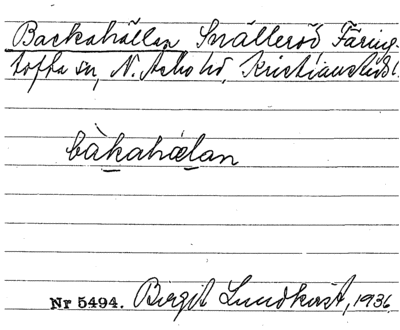 Backahällan Snälleröd, Färing-
tofta sn, N. Asbo hd, Kristianstads l.
bàkahælan
Nr 5494. Birgit Lundkvist, 1936